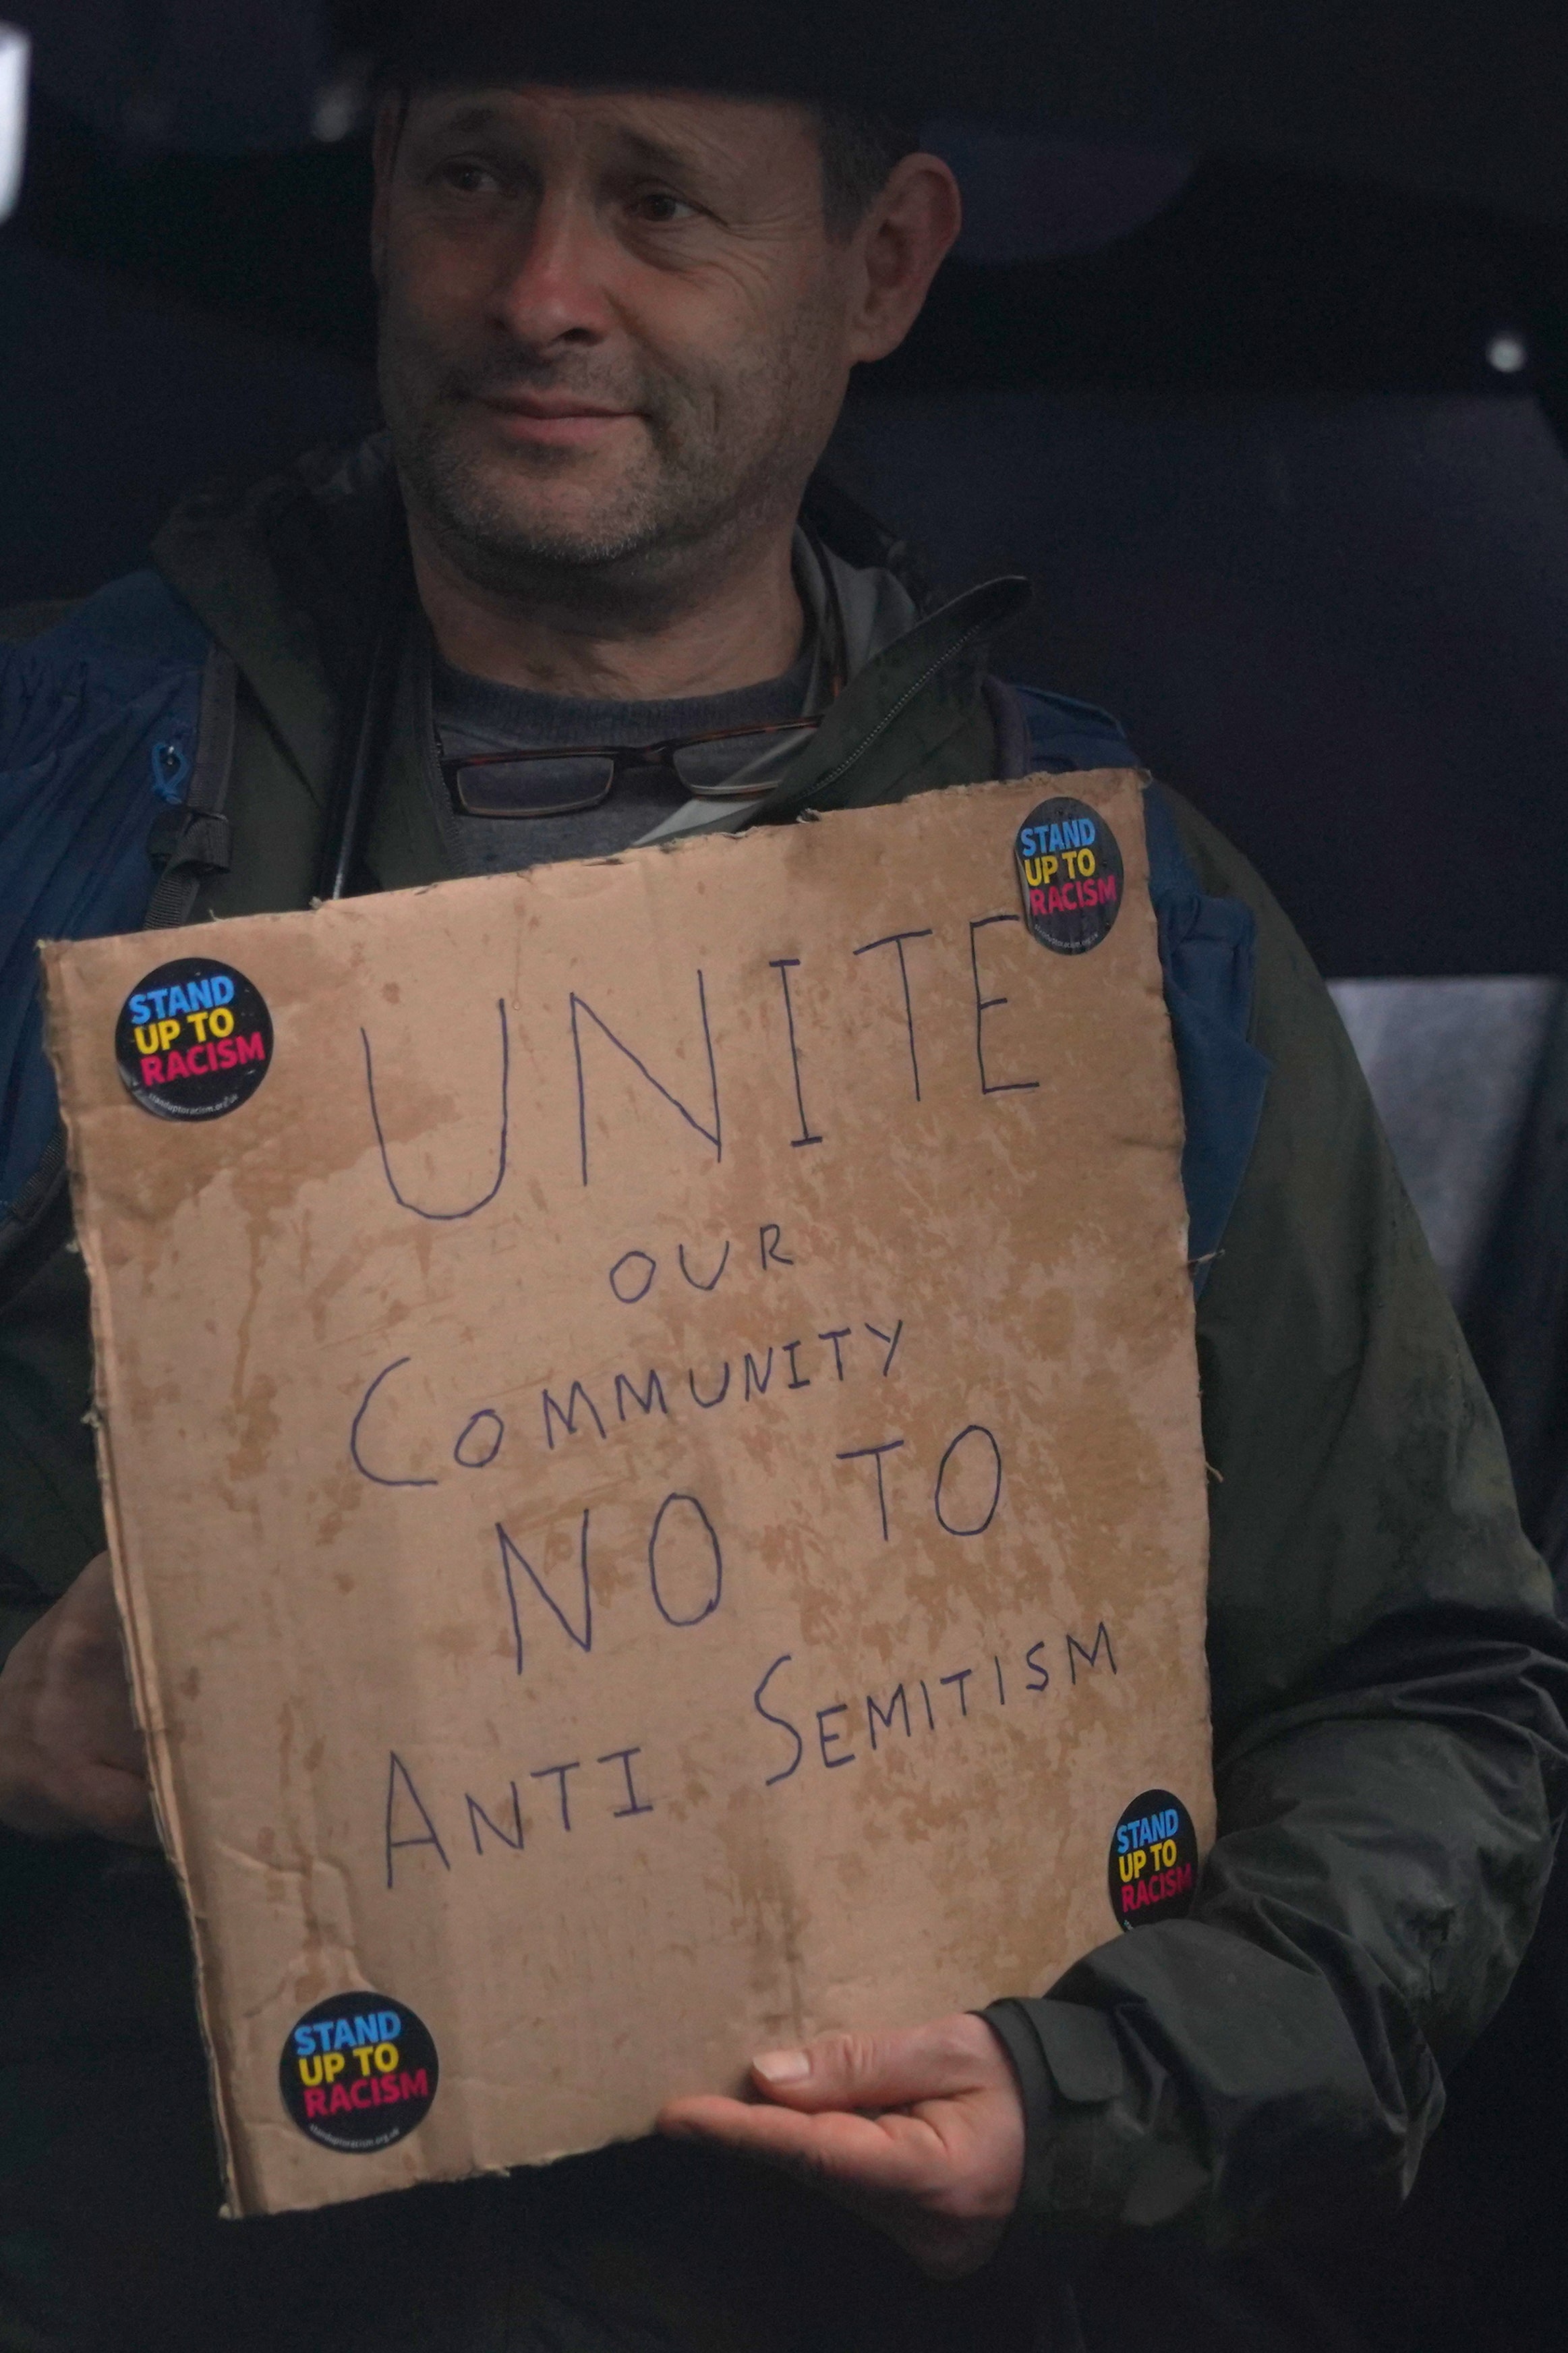 STAND
UP TO
RACISM
STAND
UP TO
RACISM
standuptoracism.org.uk
UNITE
OUR
COMMUNITY
NO TO
ANTI SEMITISM
STAND
UP TO
RACISM
STAND
UP TO
RACISM
standuptoracism.org.uk